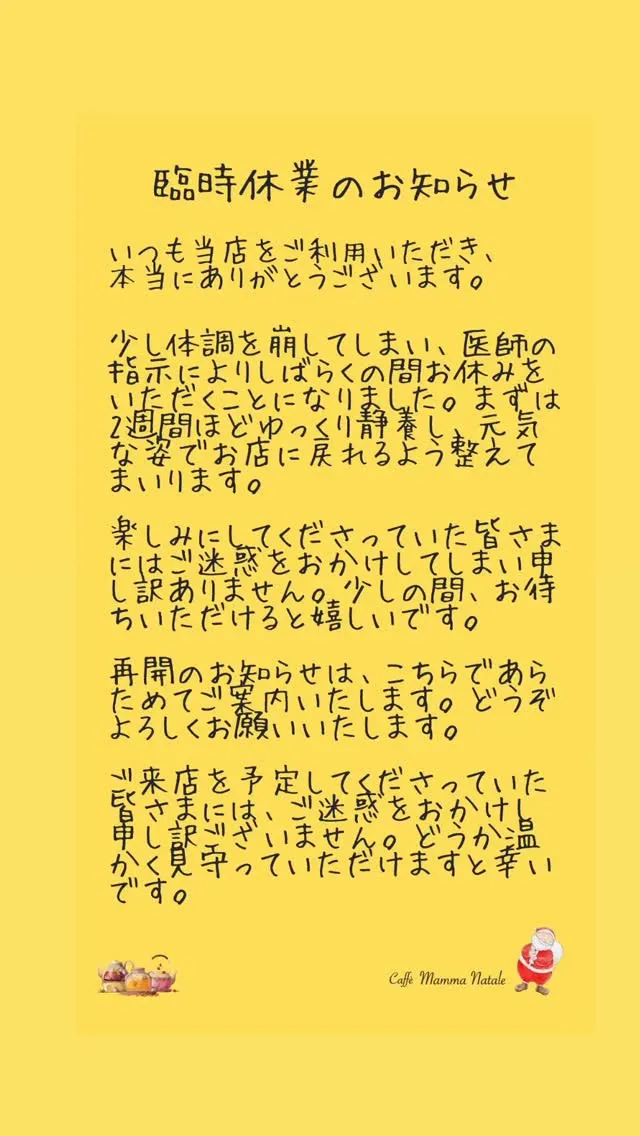 臨時休業のお知らせ
いつも当店をご利用いただき、
本当にありがとうございます。
少し体調を崩してしまい、医師の
指示によりしばらくの間お休みを
いただくことになりました。まずは
2週間ほどゆっくり静養し、元気
な姿でお店に戻れるよう整えて
まいります。
楽しみにしてくださっていた皆さま
にはご迷惑をおかけしてしまい申
し訳ありません。少しの間、お待
ちいただけると嬉しいです。
再開のお知らせは、こちらであら
ためてご案内いたします。どうぞ
よろしくお願いいたします。
ご来店を予定してくださっていた
皆さまには、ご迷惑をおかけし
申し訳ございません。どうか温
かく見守っていただけますと幸い
です。
Caffè Mamma Natale